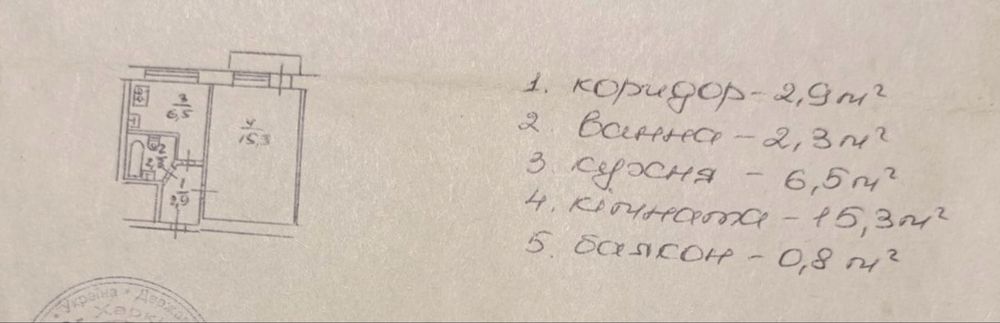 3
6,5
4
15,3
2
1
2,9
1. коридор - 2,9 м²
2 ванна - 2,3 м²
3 кухня - 6,5 м²
4. кімната - 15,3 м²
5. балкон - 0,8 м²
Україна * Держ
Харкі